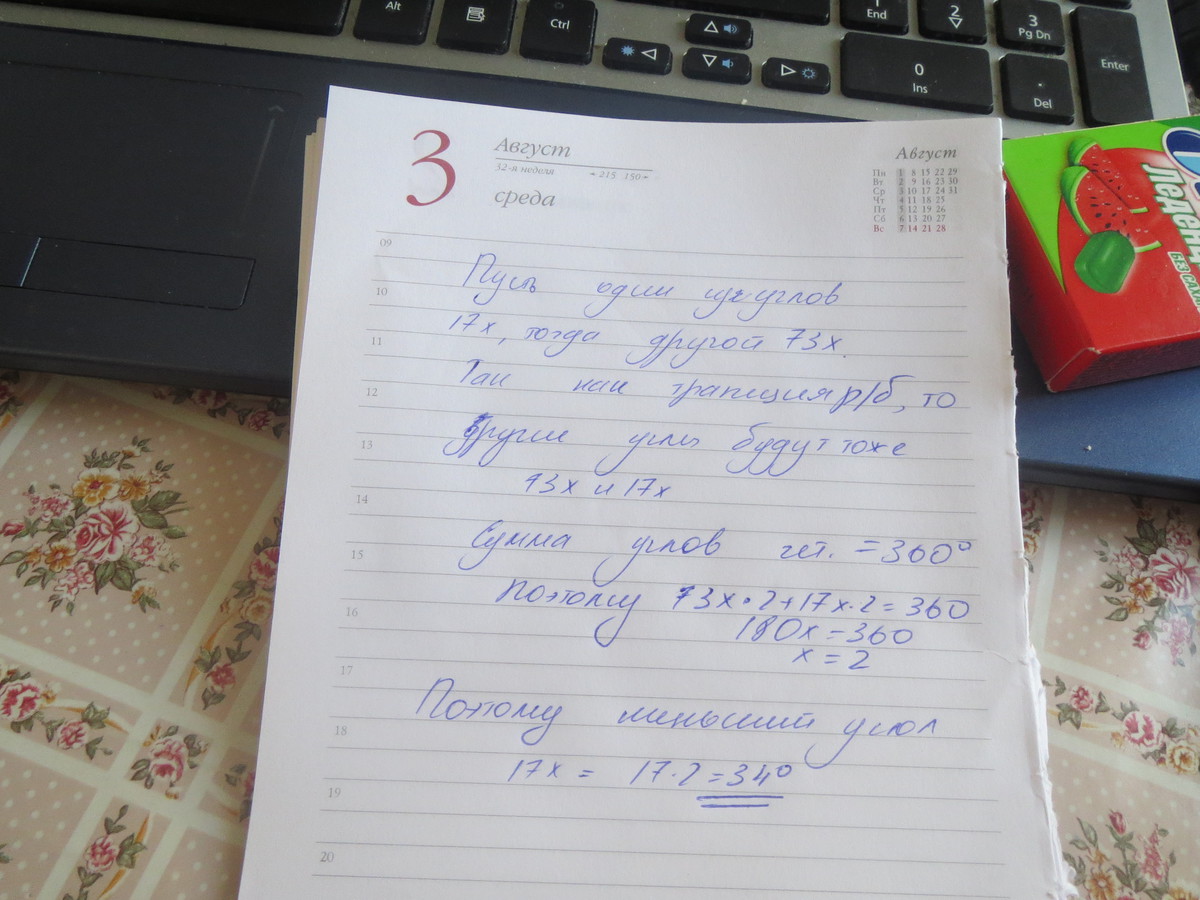 Alt
Ctrl
1
End
2
3
Pg Dn
0
Ins
.
Del
Enter
3
Август
32-я неделя
215 150
среда
Август
Пн 1 8 15 22 29
Вт 2 9 16 23 30
Ср 3 10 17 24 31
Чт 4 11 18 25
Пт 5 12 19 26
Сб 6 13 20 27
Вс 7 14 21 28
09
Пусть один из углов
10
17x, тогда другой 73x.
11
Так как трапиция р/б, то
12
другие углы будут тоже
13
73x и 17x
14
Сумма углов чет. = 360°
15
Поэтому 73x·2+17x·2=360
16
180x=360
x=2
17
Поэтому меньший угол
18
17x = 17·2=34°
19
20
БЕЗ САХА